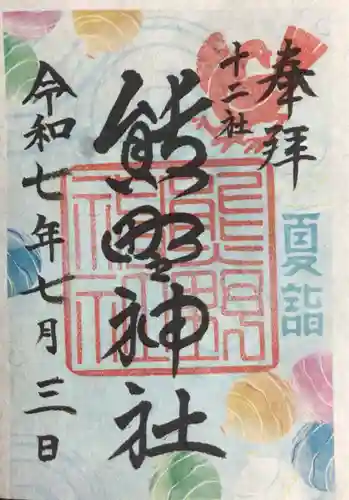 奉拝
十二社
熊野神社
令和七年七月三日
夏詣